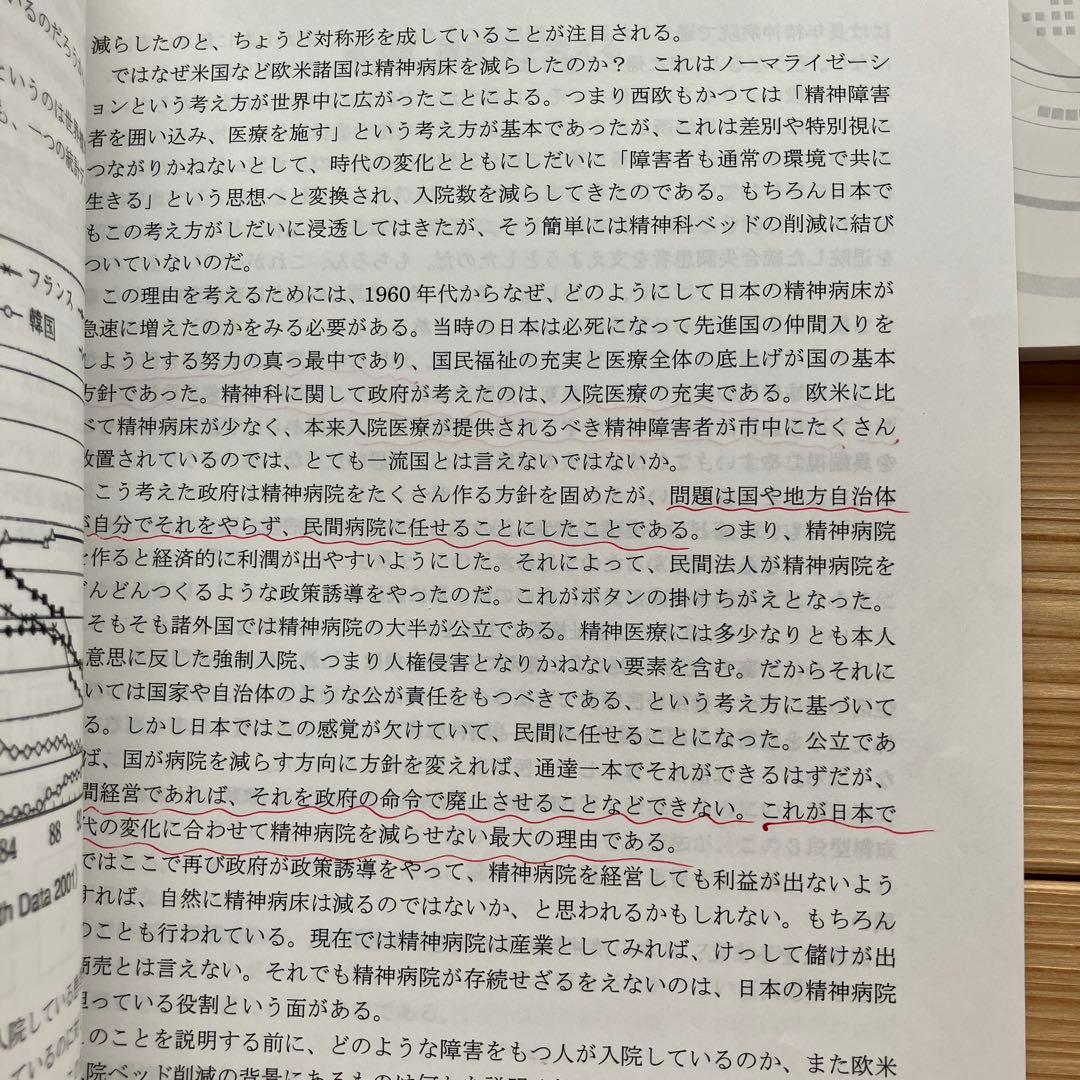 減らしたのと、ちょうど対称形を成していることが注目される。
ではなぜ米国など欧米諸国は精神病床を減らしたのか？　これはノーマライゼーシ
ョンという考え方が世界中に広がったことによる。つまり西欧もかつては「精神障害
者を囲い込み、医療を施す」という考え方が基本であったが、これは差別や特別視に
つながりかねないとして、時代の変化とともにしだいに「障害者も通常の環境で共に
生きる」という思想へと変換され、入院数を減らしてきたのである。もちろん日本で
もこの考え方がしだいに浸透してはきたが、そう簡単には精神科ベッドの削減に結び
ついていないのだ。
この理由を考えるためには、1960 年代からなぜ、どのようにして日本の精神病床が
急速に増えたのかをみる必要がある。当時の日本は必死になって先進国の仲間入りを
しようとする努力の真っ最中であり、国民福祉の充実と医療全体の底上げが国の基本
方針であった。精神科に関して政府が考えたのは、入院医療の充実である。欧米に比
べて精神病床が少なく、本来入院医療が提供されるべき精神障害者が市中にたくさん
放置されているのでは、とても一流国とは言えないではないか。
こう考えた政府は精神病院をたくさん作る方針を固めたが、問題は国や地方自治体
が自分でそれをやらず、民間病院に任せることにしたことである。つまり、精神病院
を作ると経済的に利潤が出やすいようにした。それによって、民間法人が精神病院を
どんどんつくるような政策誘導をやったのだ。これがボタンの掛けちがえとなった。
そもそも諸外国では精神病院の大半が公立である。精神医療には多少なりとも本人
意思に反した強制入院、つまり人権侵害となりかねない要素を含む。だからそれに
いては国家や自治体のような公が責任をもつべきである、という考え方に基づいて
る。しかし日本ではこの感覚が欠けていて、民間に任せることになった。公立であ
ば、国が病院を減らす方向に方針を変えれば、通達一本でそれができるはずだが、
間経営であれば、それを政府の命令で廃止させることなどできない。これが日本で
代の変化に合わせて精神病院を減らせない最大の理由である。
ではここで再び政府が政策誘導をやって、精神病院を経営しても利益が出ないよう
すれば、自然に精神病床は減るのではないか、と思われるかもしれない。もちろん
のことも行われている。現在では精神病院は産業としてみれば、けっして儲けが出
商売とは言えない。それでも精神病院が存続せざるをえないのは、日本の精神病院
担っている役割という面がある。
このことを説明する前に、どのような障害をもつ人が入院しているのか、また欧米
いるのだろうか
というのは世界
も、一つの統計
フランス
韓国
84
88
th Data 2001)
入院している
ているのに